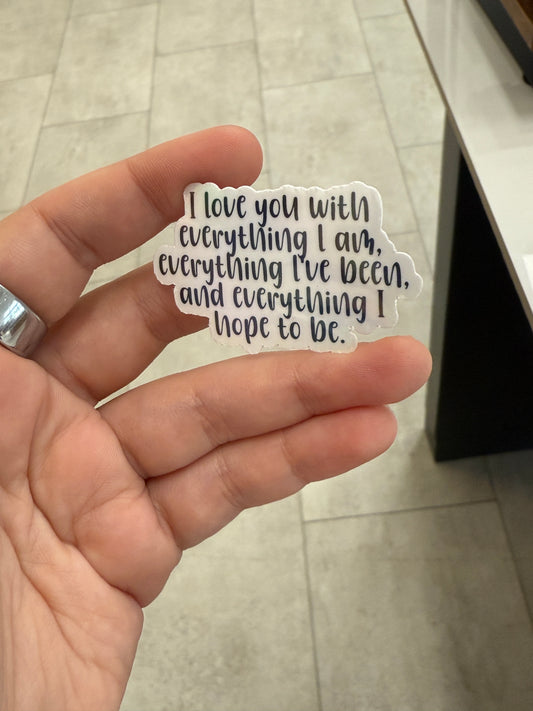 I love you with
everything I am,
everything I've been,
and everything I
hope to be.